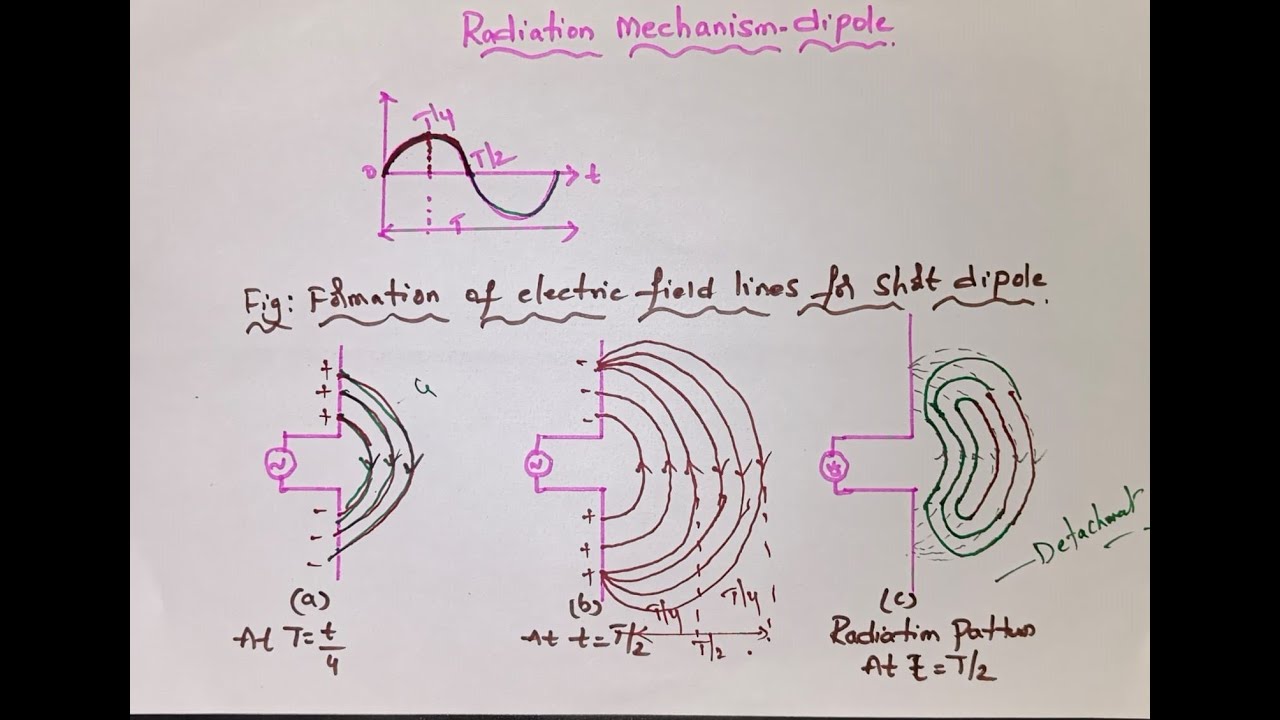 Radiation Mechanism-dipole
T/4
T/2
0
t
T
Fig: Formation of electric field lines for short dipole.
+
+
+
-
-
-
(a)
At T = t/4
-
-
-
+
+
+
(b)
T/4
T/4
At t = T/2
T/2
Detachment
(c)
Radiation Pattern
At t = T/2